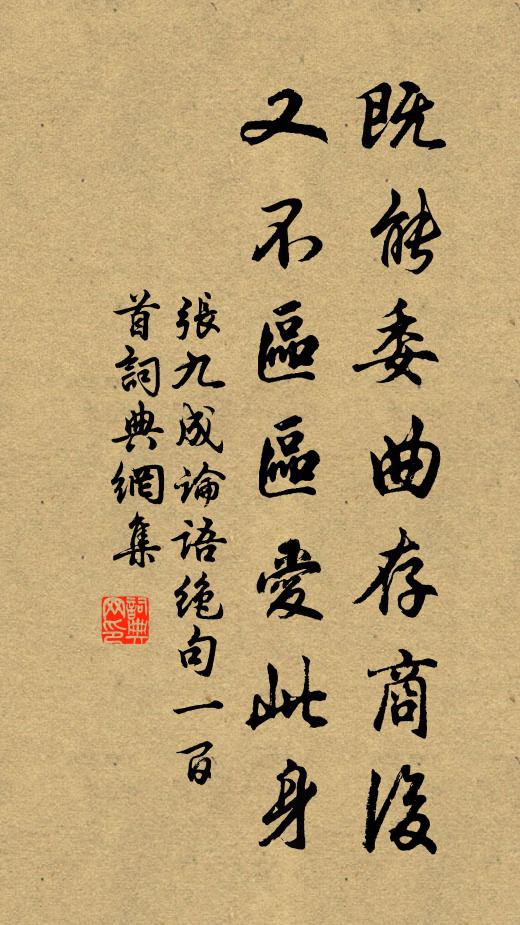 既能委曲存商後
又不區區愛此身
張九成論語绝句一百
首詞典網集
詞典网印